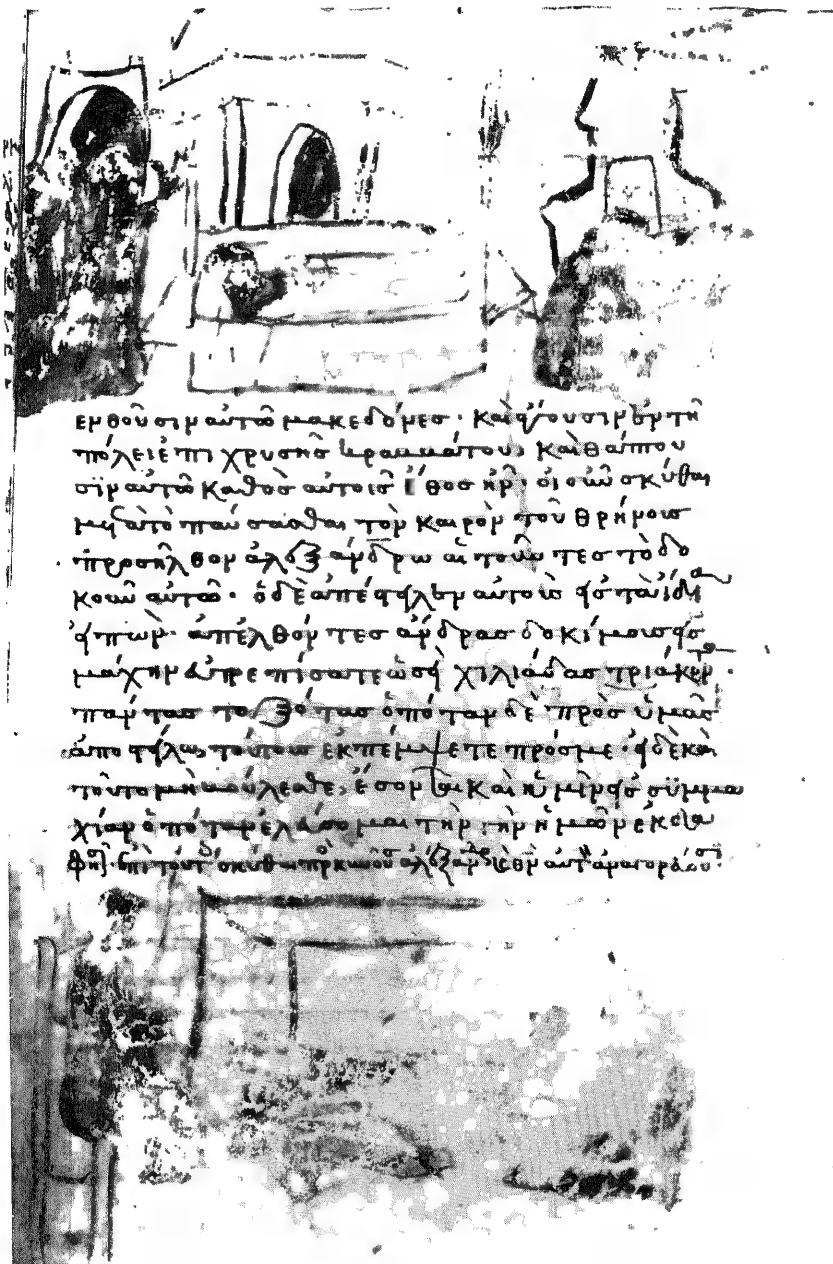 ενθοῦσιν αὐτῶ μακεδόνες· καὶ ἄγουσιν ἐν τῆ
πόλει ἐπι χρυσῆς κραμμάτου, καὶ θάπτου
σϊν αὐτῶ καθὸς αὐτοῖς ἔθος ἦν· οἱ οὖν σκύθαι
μὴ ἀπὸ παύσασθαι τὸν καιρὸν τοῦ θρήνοις
προσῆλθον ἀλεξάνδρω αἰτοῦντες τὸ δο
κοῦν αὐτῶ· ὁ δὲ ἀπέστειλεν αὐτοὺς εἰς τὰ ἴδια
εἰπὼν· ἀπέλθόντες ἄνδρας δοκίμους εἰς
μάχην εὐπρεπίσατε ὡσεὶ χιλιάδας
πάντας τοξότας ὁπόταν δὲ πρὸς ὑμᾶς
ἀποστείλω, τούτους ἐκπέμψετε πρόσμε· εἰ δὲ καὶ
τοῦτο μὴ βούλεσθε, ἔσονται καὶ ὑμῖν εἰς σϋμμα
χίαν ὁπόταν ἐλάσομαι τὴν γῆν ἡμῶν